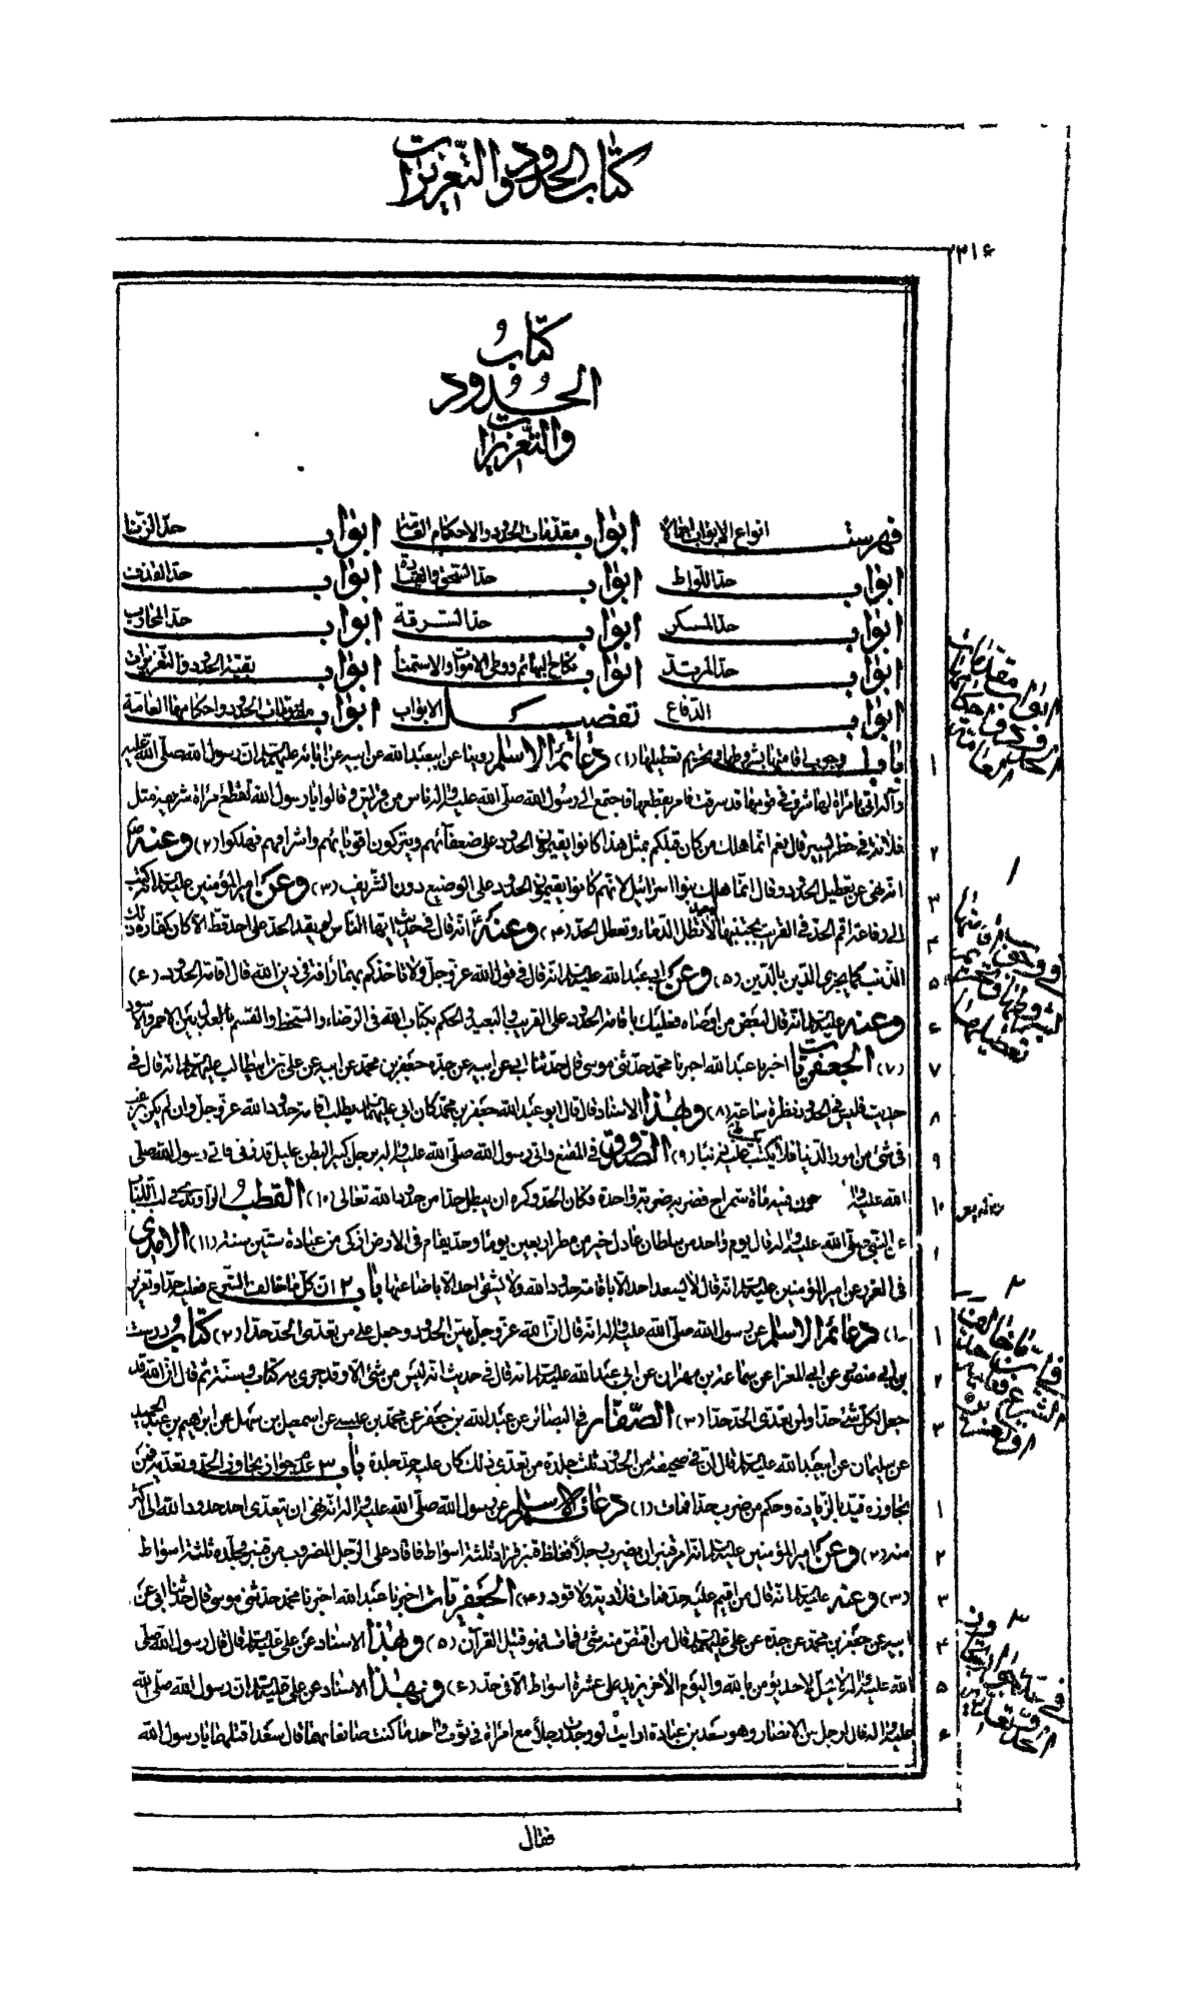 كتاب الحدود والتعزيرات
٢١٦
كتاب
الحدود
والتعزيرات
فهرست انواع الابواب اجمالا ابواب مقدمات الحدود والاحكام العامة ابواب حد الزنا
ابواب حد اللواط ابواب حد السحق والقيادة ابواب حد القذف
ابواب حد المسكر ابواب حد السرقة ابواب حد المحارب
ابواب حد المرتد ابواب نكاح البهائم ووطى الاموات والاستمناء ابواب بقية الحدود والتعزيرات
ابواب الدفاع تفصيل الابواب ابواب مقدمات الحدود واحكامها العامة
باب وجوب اقامتها بشروطها وتحريم تعطيلها (١) دعائم الاسلام روينا عن ابيعبد الله عن ابيه عن ابائه عليهم السلام ان رسول الله صلى الله عليه
وآله اتى بامراة لها شرف في قومها قد سرقت فامر بقطعها فاجتمع الى رسول الله صلى الله عليه واله ناس من قريش وقالوا يا رسول الله تقطع امراة شريفة مثل
فلانة في خطر يسير قال نعم انما هلك من كان قبلكم بمثل هذا كانوا يقيمون الحدود على ضعفائهم ويتركون اقويائهم واشرافهم فهلكوا (٢) وعنه
انه نهى عن تعطيل الحدود وقال انما هلك بنوا اسرائيل لانهم كانوا يقيمون الحدود على الوضيع دون الشريف (٣) وعن امير المؤمنين عليه السلام انه كتب
الى رفاعة اقم الحد في القريب يجتنبها البعيد لا تطل الدماء وتعطل الحد (٤) وعنه انه قال في حديث ايها الناس لم يقيد الحد على احد قط الا كان كفارة ذلك
الذنب كما يجزى الدين بالدين (٥) وعن ابيعبد الله عليه السلام انه قال في قول الله عز وجل ولا تاخذكم بهما رأفة في دين الله قال اقامة الحدود (٦)
وعنه عليه السلام انه قال لبعض من اوصاه فعليك باقامة الحدود على القريب والبعيد والحكم بكتاب الله في الرضاء والسخط والقسم بالعدل بين الاحمر والاسود
(٧) الجعفريات اخبرنا عبد الله اخبرنا محمد حدثنى موسى قال حدثنا ابى عن ابيه عن جده جعفر بن محمد عن ابيه عن على بن ابيطالب عليهم السلام انه قال في
حديث فليس في الحدود نظرة ساعة (٨) وبهذا الاسناد قال قال ابو عبد الله جعفر بن محمد كان ابى عليهما السلام يطلب اقامة حدود الله عز وجل وان لم يكن يرغب
في شئ من امور الدنيا (٩) الصدوق في المقنع واتى رسول الله صلى الله عليه واله برجل كبير البطن عليل قد زنى فاتى رسول الله صلى
الله عليه واله بعرجون فيه مأة شمراخ فضربه ضربة واحدة فكان الحد وكره ان يبطل حدا من حدود الله تعالى (١٠) القطب الراوندى في لب اللباب
عن النبى صلى الله عليه واله قال يوم واحد من سلطان عادل خير من مطر اربعين يوما وحد يقام في الارض ازكى من عبادة ستين سنة (١١) الامدى
في الغرر عن امير المؤمنين عليه السلام انه قال لا يسعد احد الا باقامة حدود الله ولا يشقى احد الا باضاعتها باب ٢ ان كل ما خالف الشرع فعليه حد او تعزير
(١) دعائم الاسلام عن رسول الله صلى الله عليه واله انه قال ان الله عز وجل بين الحدود وجعل على من تعدى الحد حدا (٢) كتاب درست
بن ابى منصور عن ابى المعزا عن سماعة بن مهران عن ابى عبد الله عليه السلام انه قال في حديث انه ليس من شئ الا وقد جرى به كتاب وسنة ثم قال ان الله قد
جعل لكل شئ حدا ولمن تعدى الحد حدا (٣) الصفار في البصائر عن عبد الله بن جعفر عن محمد بن عيسى عن اسمعيل بن سهل عن ابراهيم بن عبد الحميد
عن سليمان عن ابيعبد الله عليه السلام قال ان في صحيفة من الحدود ثلث جلدة من تعدى ذلك كان عليه حد جلدة باب ٣ عدم جواز تجاوز الحد وتعديه فمن
تجاوزه قيد بالزيادة وحكم من ضرب حدا فمات (١) دعائم الاسلام عن رسول الله صلى الله عليه واله انه نهى ان يتعدى احد حدود الله الى اكثر
منه (٢) وعن امير المؤمنين عليه السلام انه امر قنبر ان يضرب رجلا فغلط قنبر فزاد ثلثة اسواط فاقاد على الرجل المضروب من قنبر فجلده ثلثة اسواط
(٣) وعنه عليه السلام انه قال من اقيم عليه حد فمات فلا دية ولا قود (٤) الجعفريات اخبرنا عبد الله اخبرنا محمد حدثنى موسى قال حدثنا ابى عن
ابيه عن جعفر بن محمد عن جده عن على عليهم السلام قال من اقتص منه شئ فمات فهو قتيل القرآن (٥) وبهذا الاسناد عن على عليه السلام قال قال رسول الله صلى
الله عليه واله لا يحل لاحد يؤمن بالله واليوم الاخر يزيد على عشرة اسواط الا في حد (٦) وبهذا الاسناد عن على عليه السلام ان رسول الله صلى الله
عليه واله قال لرجل من الانصار وهو سعد بن عبادة ارايت لو وجدت رجلا مع امراة في ثوب واحد ما كنت صانعا بهما قال سعد اقتلهما يا رسول الله
فقال
ابواب مقدمات
الحدود واحكامها
العامة
١
في وجوب اقامتها
بشروطها وتحريم
تعطيلها
٢
في ان ما خالف
الشرع فعليه حد
او تعزير
٣